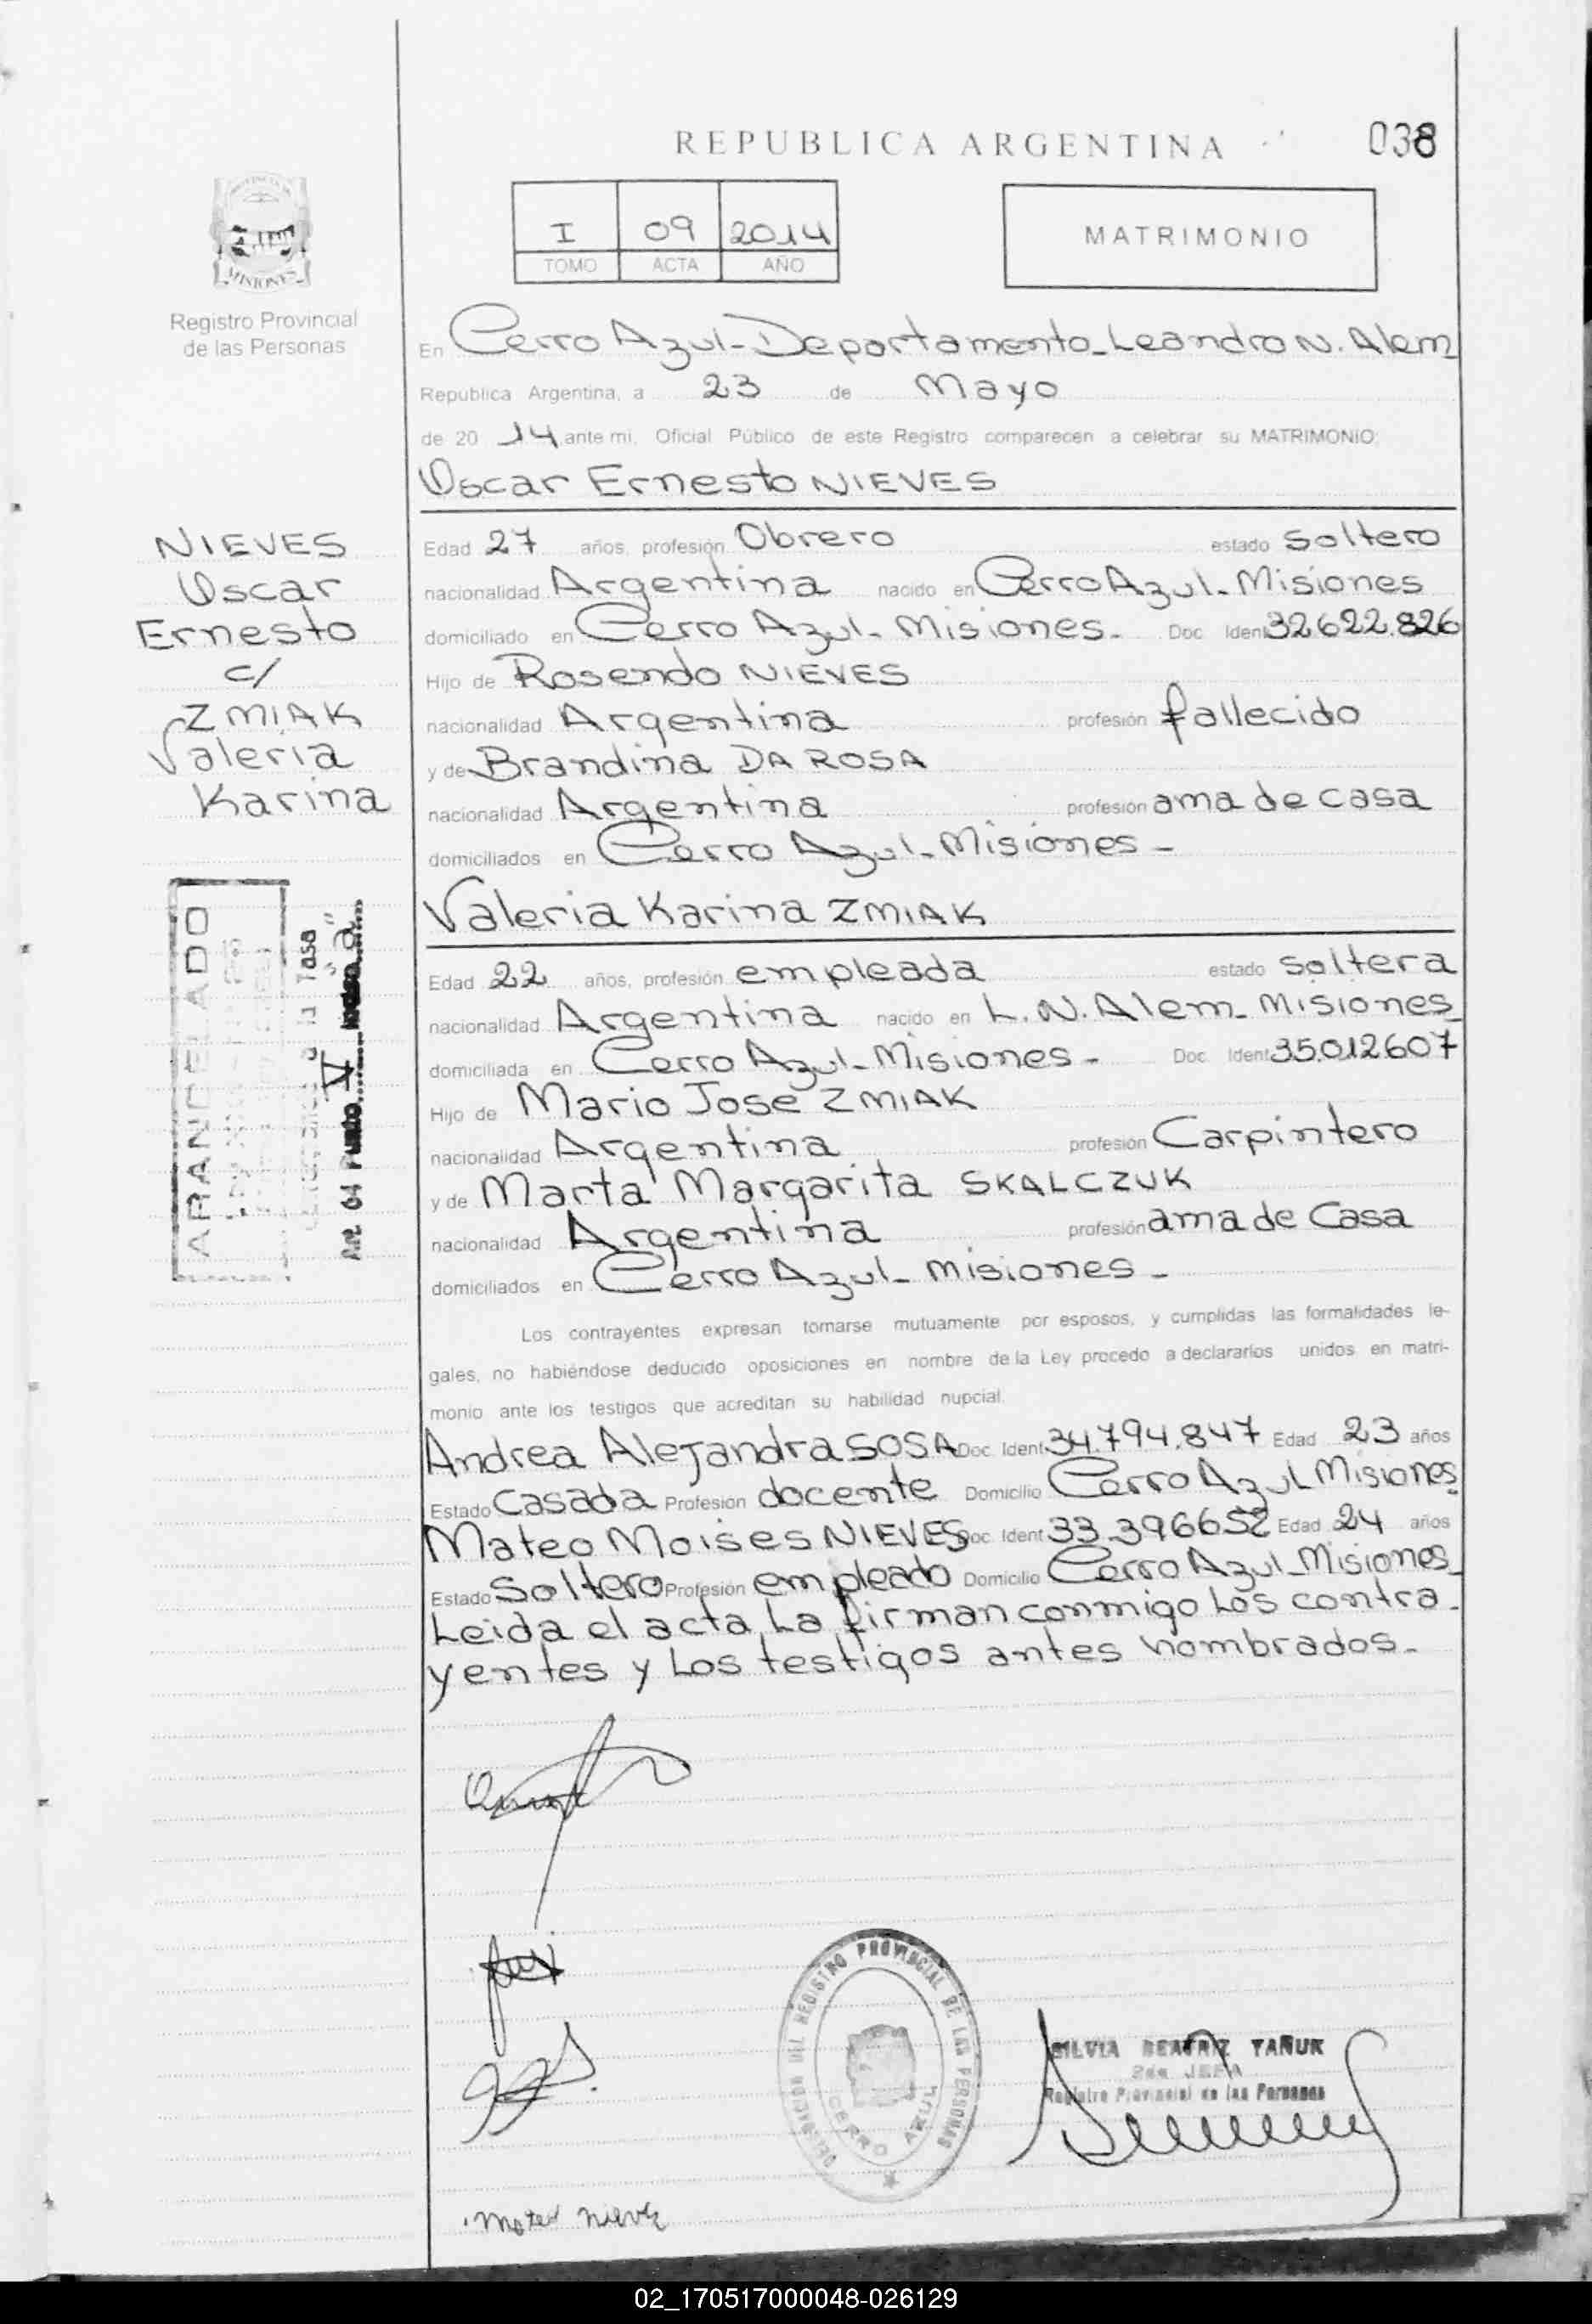 REPUBLICA ARGENTINA
038
I 09 2014
TOMO ACTA AÑO
MATRIMONIO
PROVINCIA DE
MISIONES
Registro Provincial
de las Personas
En Cerro Azul - Departamento - Leandro N. Alem
Republica Argentina, a 23 de Mayo
de 20 14 ante mi, Oficial Público de este Registro comparecen a celebrar su MATRIMONIO:
Oscar Ernesto NIEVES
NIEVES
Oscar
Ernesto
c/
ZMIAK
Valeria
Karina
Edad 27 años, profesión Obrero estado Soltero
nacionalidad Argentina nacido en Cerro Azul - Misiones
domiciliado en Cerro Azul - Misiones - Doc Ident 32.622.826
Hijo de Rosendo NIEVES
nacionalidad Argentina profesión fallecido
y de Brandina DA ROSA
nacionalidad Argentina profesión ama de casa
domiciliados en Cerro Azul - Misiones -
Valeria Karina ZMIAK
ARANCELADO
a la Tasa
Art. 64 Punto V Inciso "a"
Edad 22 años, profesión empleada estado Soltera
nacionalidad Argentina nacido en L. N. Alem - Misiones
domiciliada en Cerro Azul - Misiones - Doc Ident 35.012607
Hijo de Mario José ZMIAK
nacionalidad Argentina profesión Carpintero
y de Marta Margarita SKALCZUK
nacionalidad Argentina profesión ama de Casa
domiciliados en Cerro Azul - Misiones -
Los contrayentes expresan tomarse mutuamente por esposos, y cumplidas las formalidades le-
gales, no habiéndose deducido oposiciones en nombre de la Ley procedo a declararlos unidos en matri-
monio ante los testigos que acreditan su habilidad nupcial.
Andrea Alejandra SOSA Doc Ident 34.794.847 Edad 23 años
Estado Casada Profesión docente Domicilio Cerro Azul Misiones
Mateo Moises NIEVES Doc. Ident 33.396652 Edad 24 años
Estado Soltero Profesión empleado Domicilio Cerro Azul - Misiones
Leida el acta, La firman conmigo Los contra-
yentes y Los testigos antes nombrados.-
DELEGACION DEL REGISTRO PROVINCIAL DE LAS PERSONAS
CERRO AZUL
SILVIA BEATRIZ TAÑUK
2da JEFA
Registro Provincial de las Personas
Mateo Nieve
02_170517000048-026129